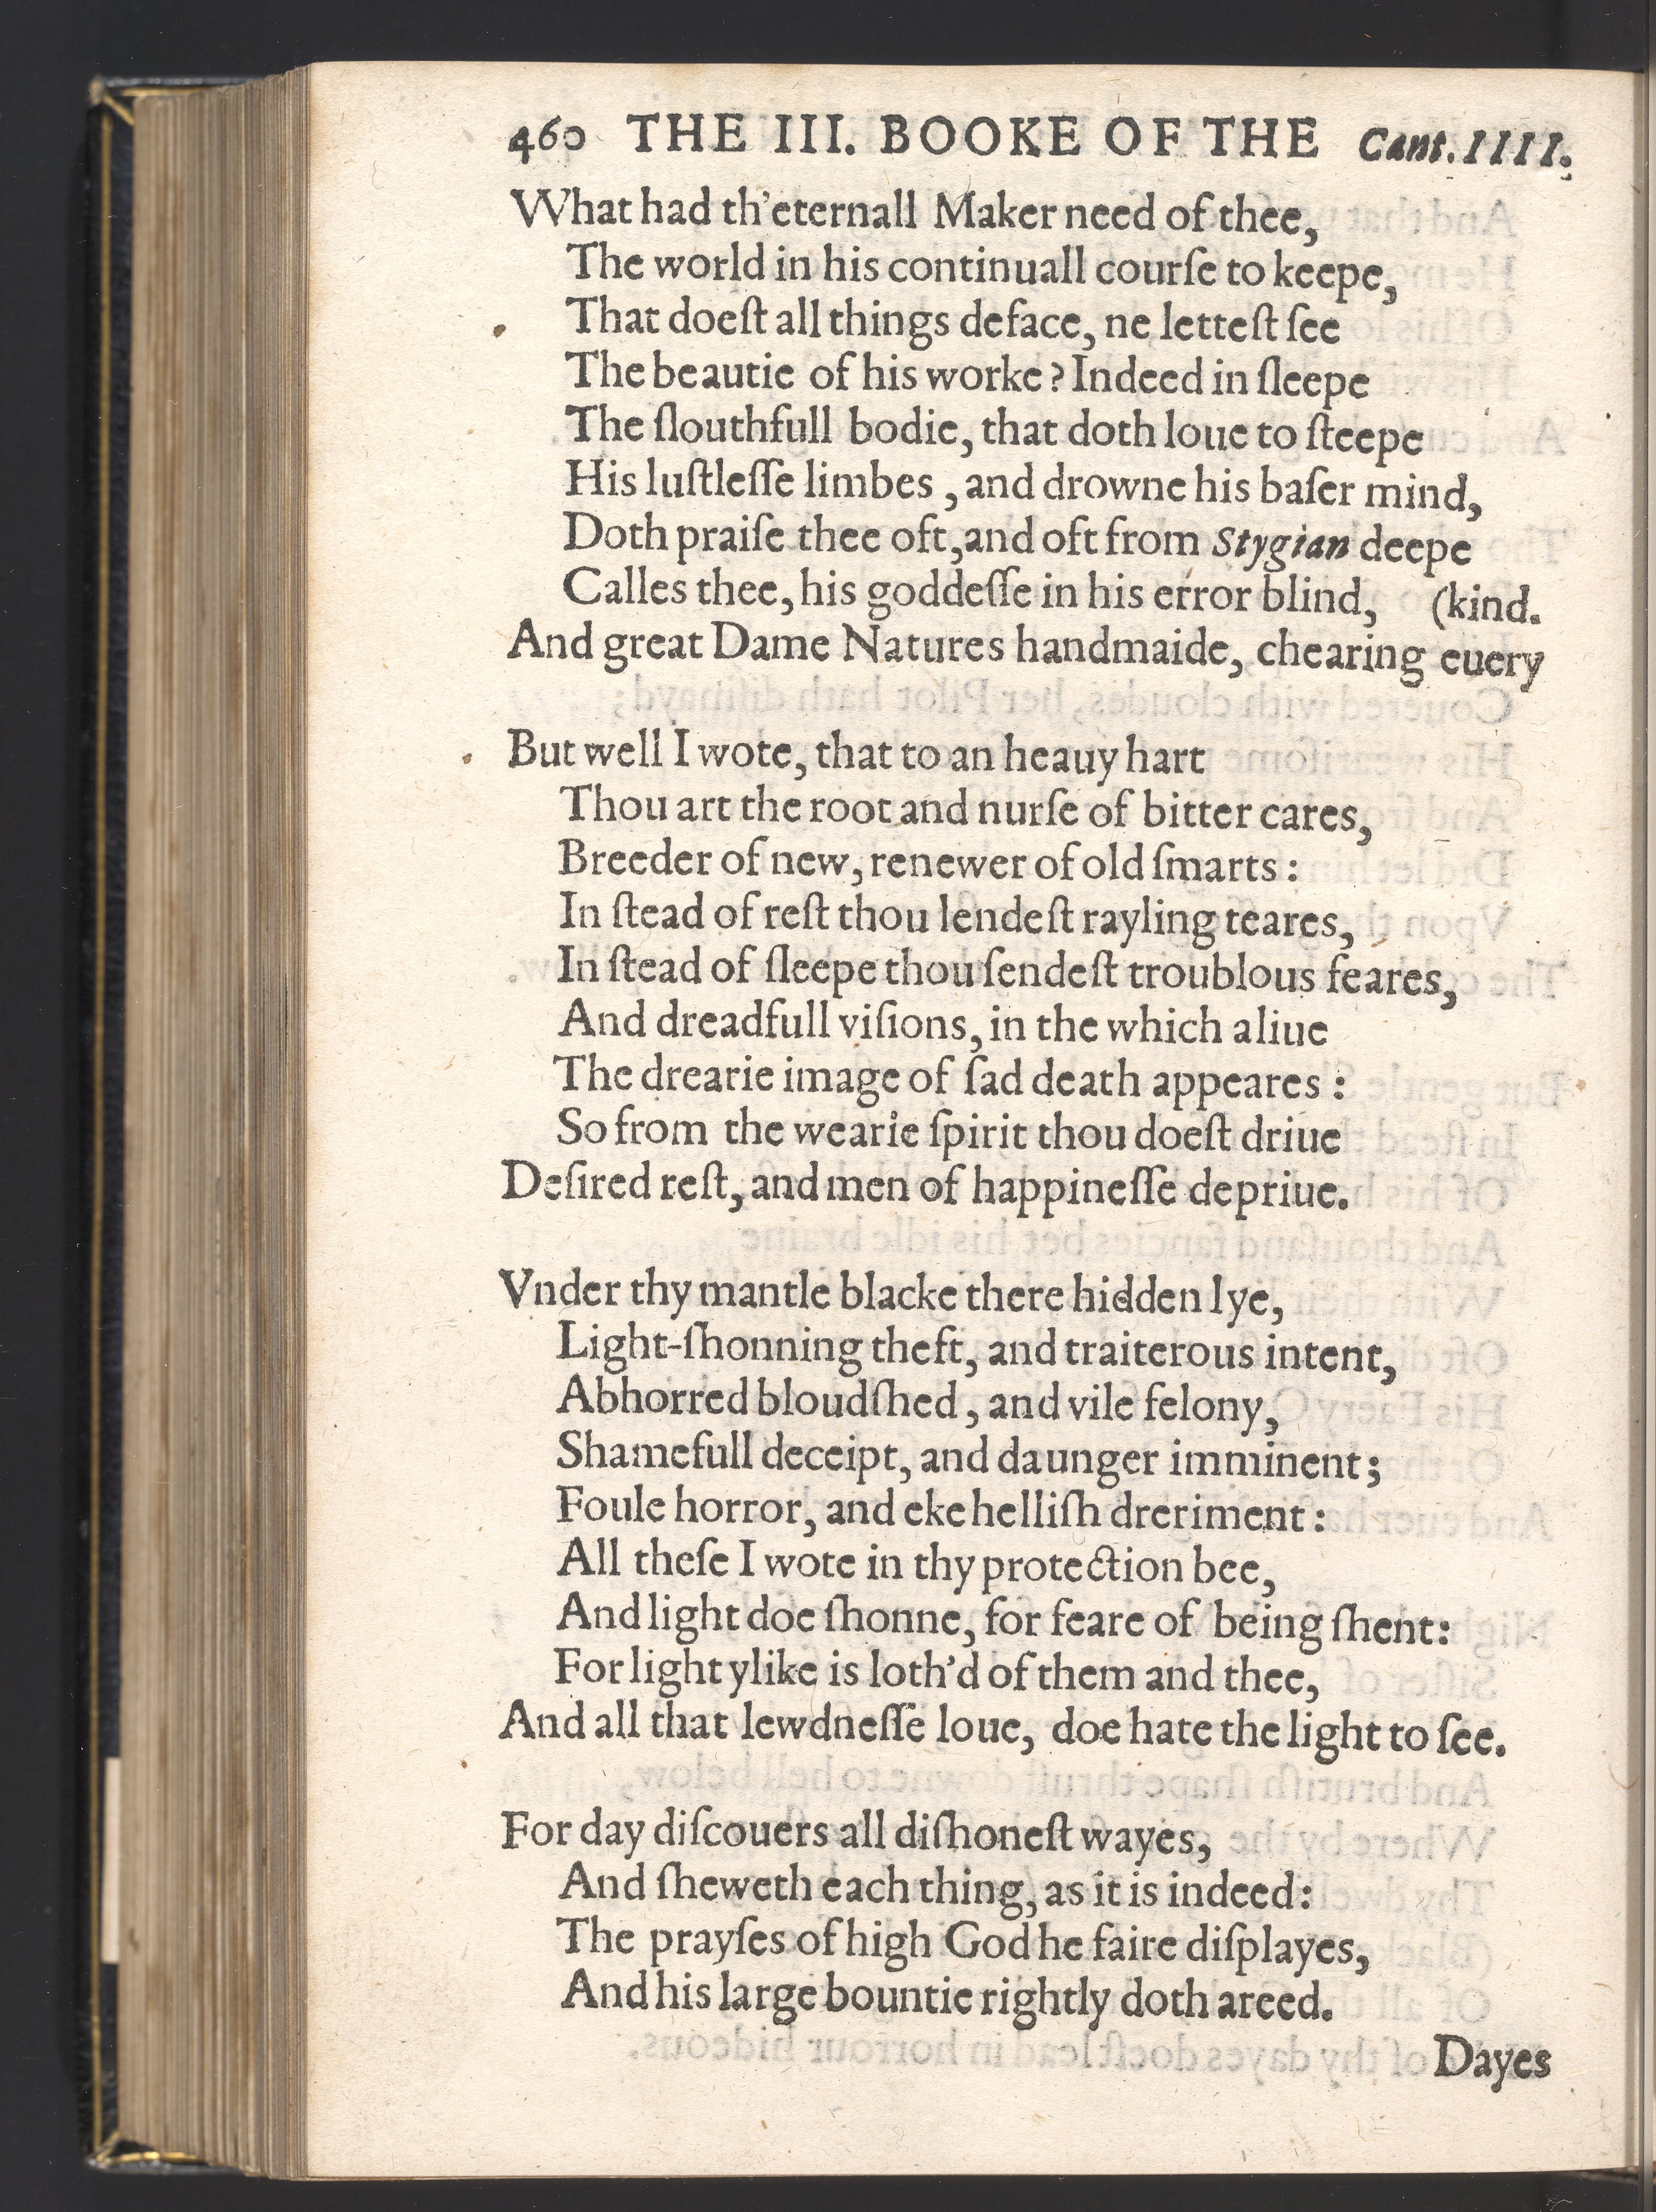 460 THE III. BOOKE OF THE Cant. IIII.
What had th'eternall Maker need of thee,
The world in his continuall courſe to keepe,
That doeſt all things deface, ne letteſt ſee
The beautie of his worke? Indeed in ſleepe
The ſlouthfull bodie, that doth loue to ſteepe
His luſtleſſe limbes, and drowne his baſer mind,
Doth praiſe thee oft, and oft from Stygian deepe
Calles thee, his goddeſſe in his error blind, (kind.
And great Dame Natures handmaide, chearing euery
But well I wote, that to an heauy hart
Thou art the root and nurſe of bitter cares,
Breeder of new, renewer of old ſmarts:
In ſtead of reſt thou lendeſt rayling teares,
In ſtead of ſleepe thou ſendeſt troublous feares,
And dreadfull viſions, in the which aliue
The drearie image of ſad death appeares:
So from the wearie ſpirit thou doeſt driue
Deſired reſt, and men of happineſſe depriue.
Vnder thy mantle blacke there hidden lye,
Light-ſhonning theft, and traiterous intent,
Abhorred bloudſhed, and vile felony,
Shamefull deceipt, and daunger imminent;
Foule horror, and eke helliſh dreriment:
All theſe I wote in thy protection bee,
And light doe ſhonne, for feare of being ſhent:
For light ylike is loth'd of them and thee,
And all that lewdneſſe loue, doe hate the light to ſee.
For day diſcouers all diſhoneſt wayes,
And ſheweth each thing, as it is indeed:
The prayſes of high God he faire diſplayes,
And his large bountie rightly doth areed.
Dayes